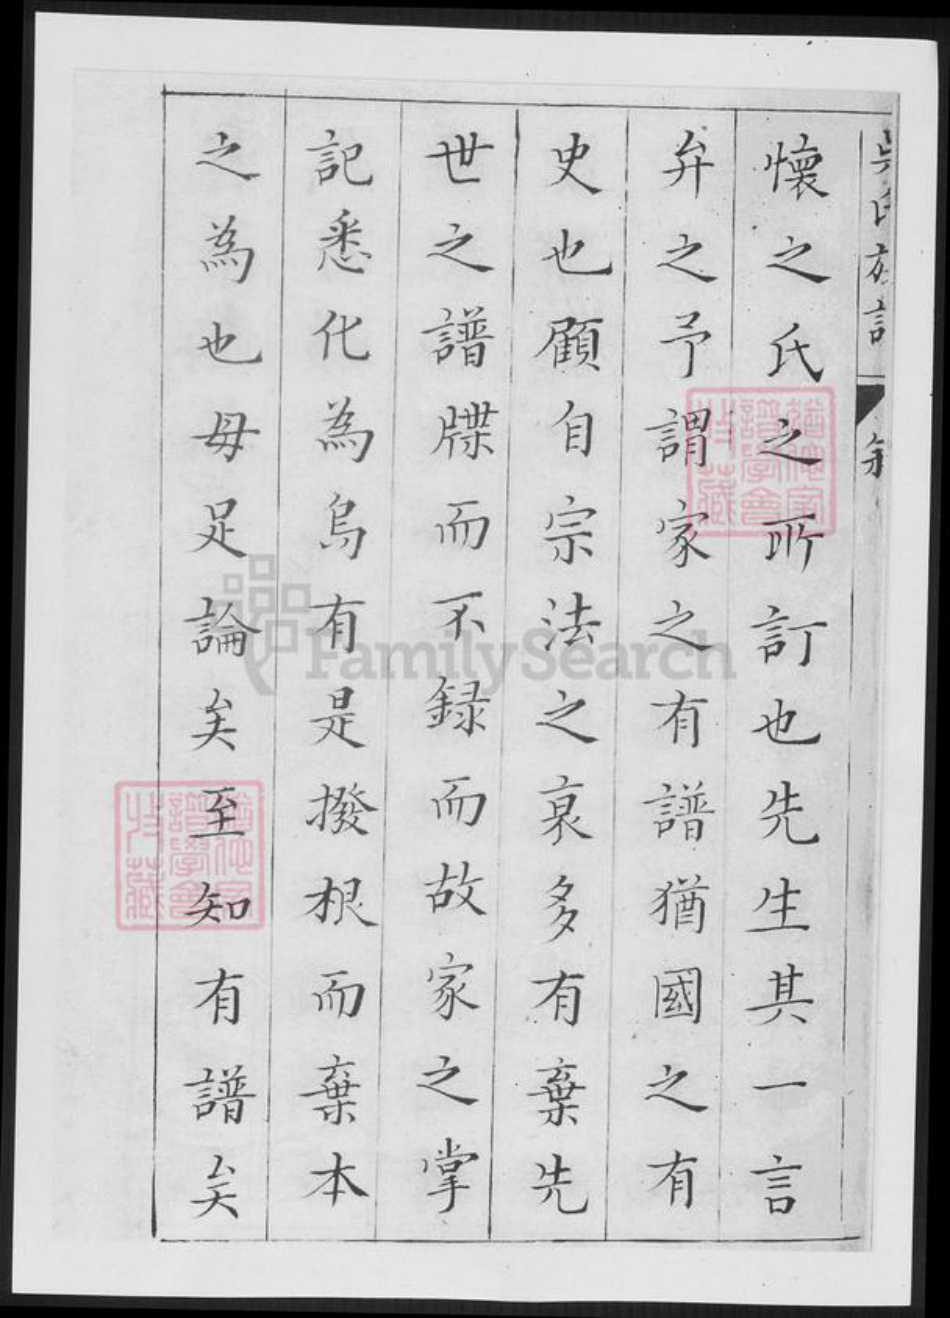 吳氏族譜
懷之氏之所訂也先生其一言
弁之予謂家之有譜猶國之有
史也顧自宗法之衰多有棄先
世之譜牒而不録而故家之掌
記悉化為烏有是撥根而棄本
之為也毋足論矣至知有譜矣
譜學會
收藏
FamilySearch
譜學會
收藏